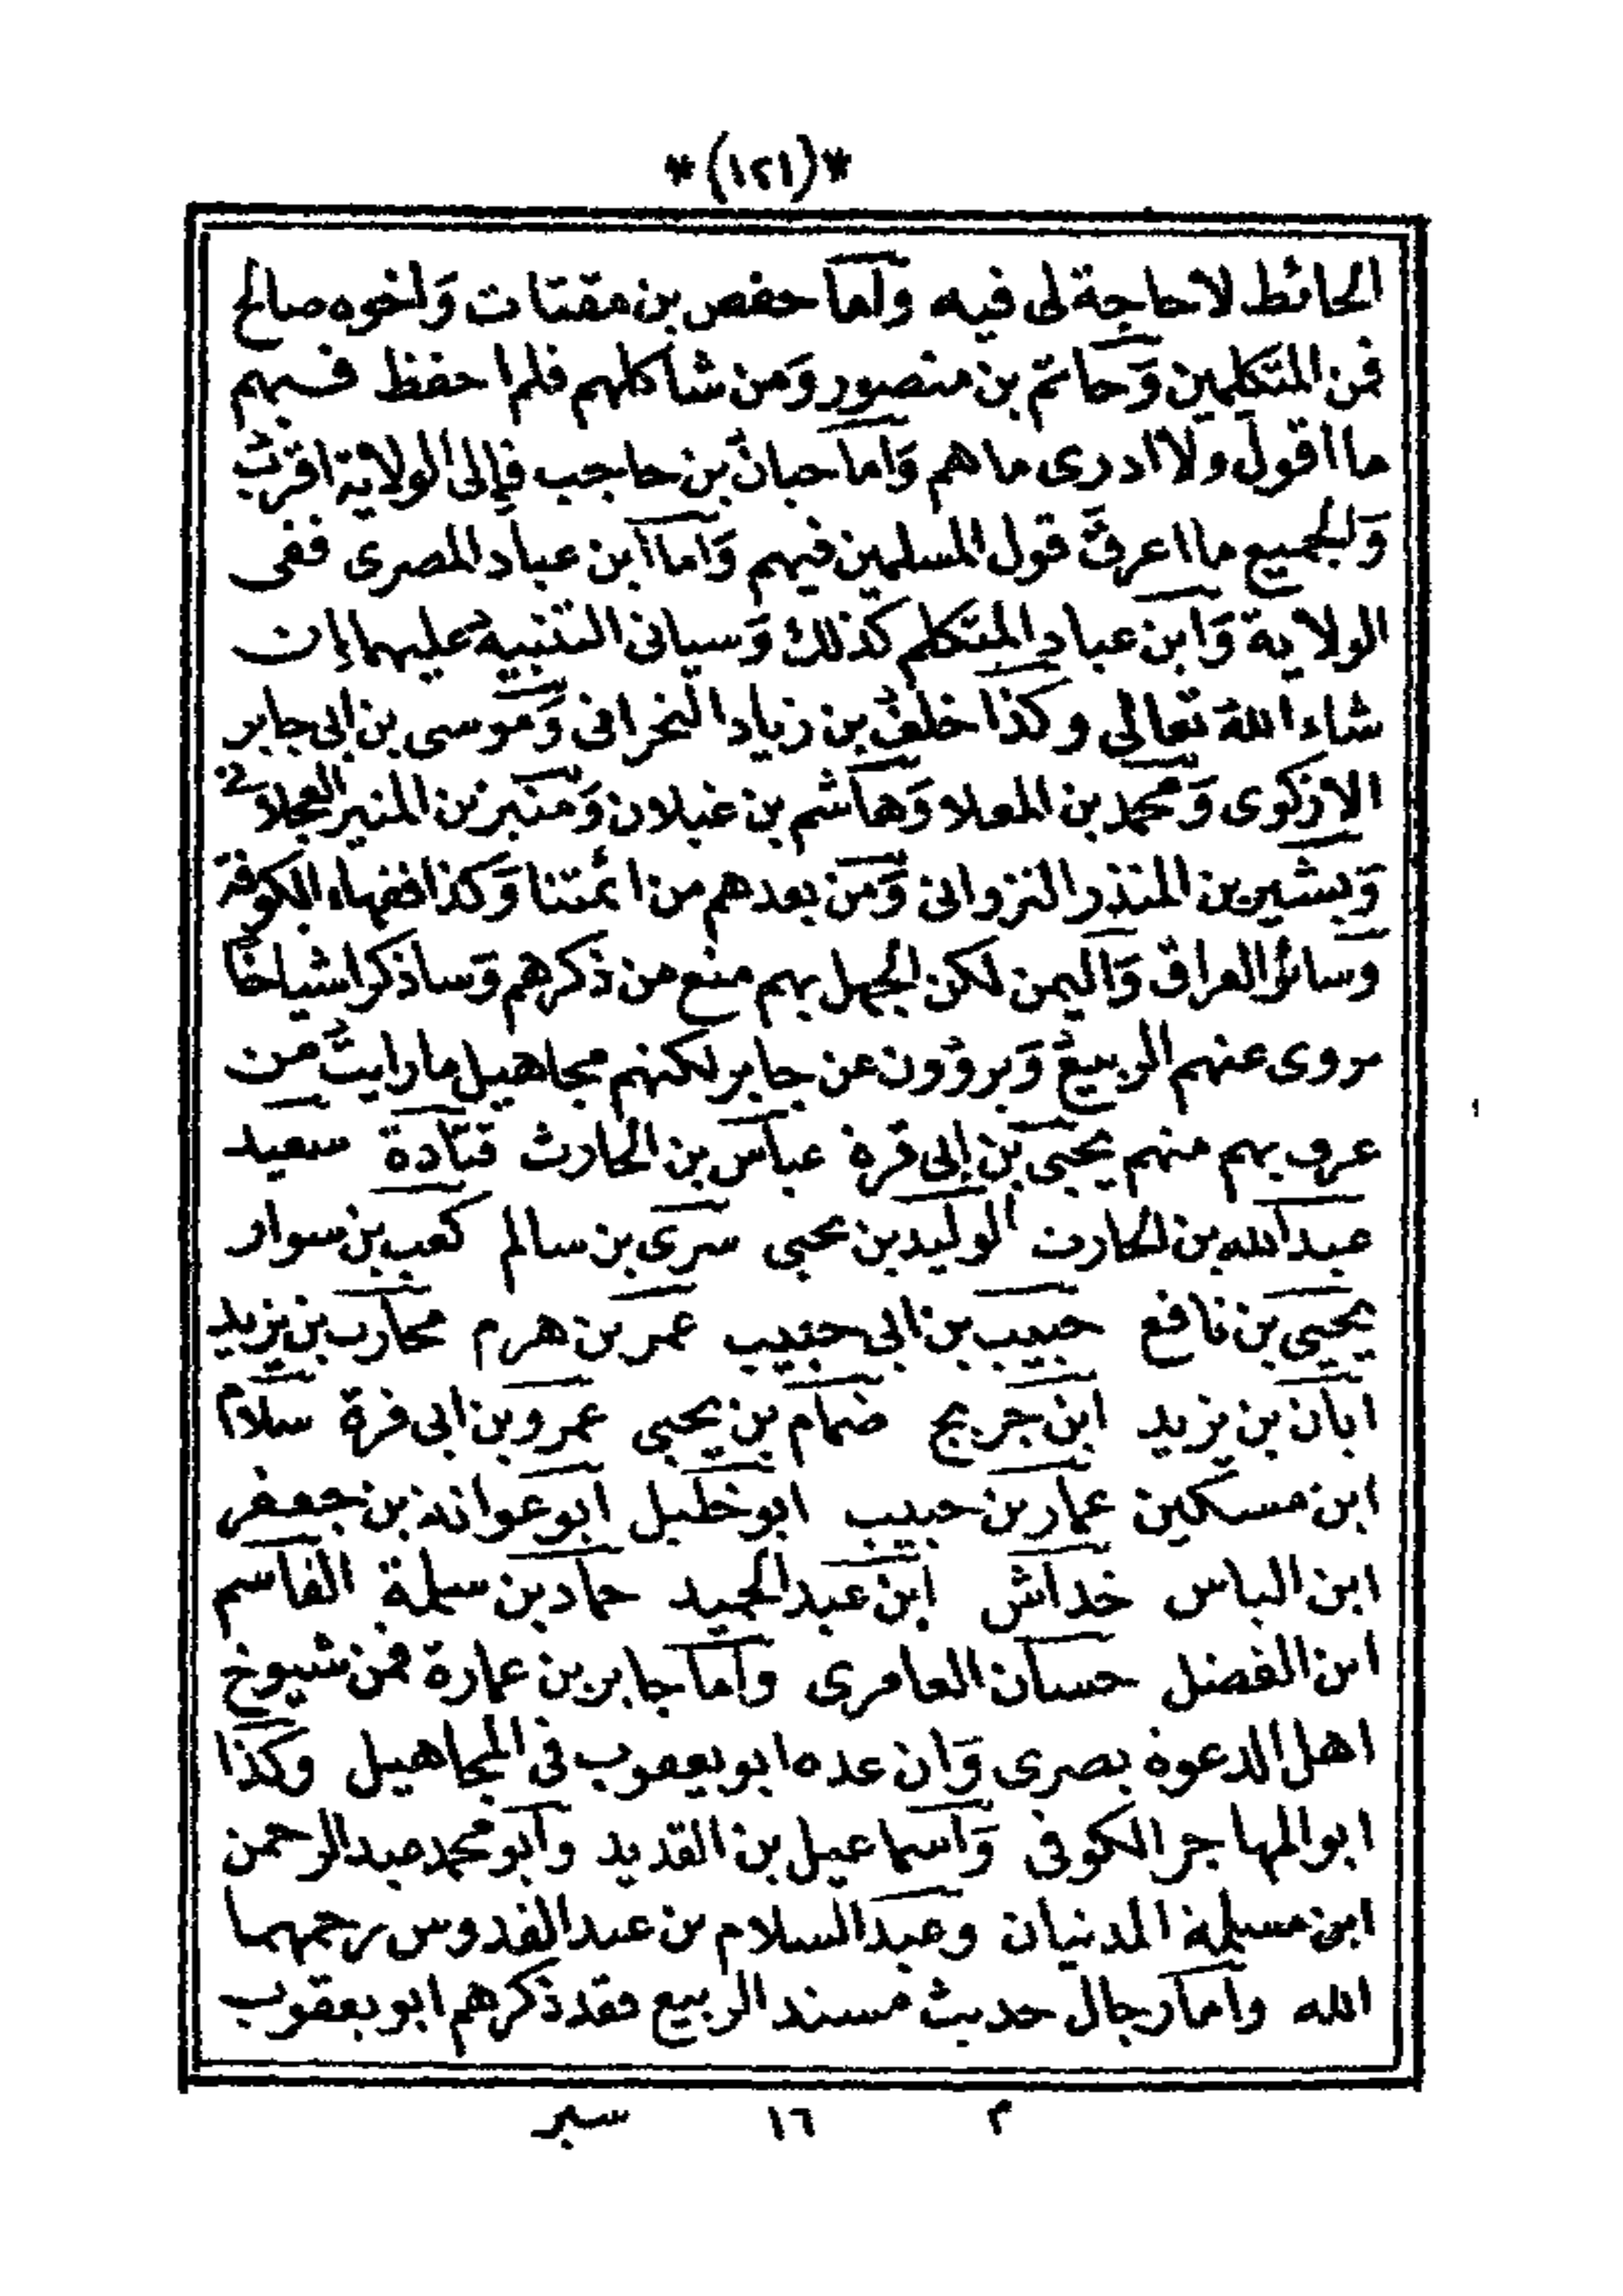 *(١٢١)*
الحائط لا حاجة لى فيه وأما حفص بن مقتات وَاخوه صالح
فمن المتكلمين وَحاتم بن منصور وَمن شاكلهم فلم احفظ فيهم
ما اقول ولا ادرى ما هم وَاما حبان بن حاجب فإلى الولاية اقرب
وَالجميع ما اعرف قول المسلمين فيهم وَاما ابن عباد المصرى ففى
الولاية وَابن عباد المتكلم كذلك وَسياتى التنبيه عليهما إن
شاء الله تعالى وكذا خلف بن زياد النحرانى وَموسى بن ابى جابر
الازكوى وَمحمد بن المعلا وَهاشم بن غيلان وَمنير بن المنير الجعلانى
وَبشير بن المنذر النزوانى وَمن بعدهم من ائمتنا وَكذا فقهاء الكوفة
وَسائر العراق وَاليمن لكن الجهل بهم منع من ذكرهم وَساذكر اشياخا
يروى عنهم الربيع وَيروون عن جابر لكنهم مجاهيل ما رايت من
عرف بهم منهم يحيى بن ابى قرة عباس بن الحارث قتادة سعيد
عبد الله بن الحارث الوليد بن يحيى سرى بن سالم كعب بن سوار
يحيى بن نافع حبيب بن ابى حبيب عمر بن هرم محارب بن يزيد
ابان بن يزيد ابن جريج ضمام بن يحيى عمرو بن ابى قرة سلام
ابن مسكين عمار بن حبيب ابو خليل ابو عوانة بن جعفر
ابن الباس خداش ابن عبد الحميد حماد بن سلمة القاسم
ابن الفضل حسان العامرى وأما جابر بن عمارة فمن شيوخ
اهل الدعوة بصرى وَان عده ابو يعقوب فى المجاهيل وكذا
ابو المهاجر الكوفى وَاسماعيل بن القديد وأبو محمد عبد الرحمن
ابن مسلمة المدنيان وعبد السلام بن عبد القدوس رحمهما
الله وأما رجال حديث مسند الربيع فقد ذكرهم ابو يعقوب
م ١٦ سير